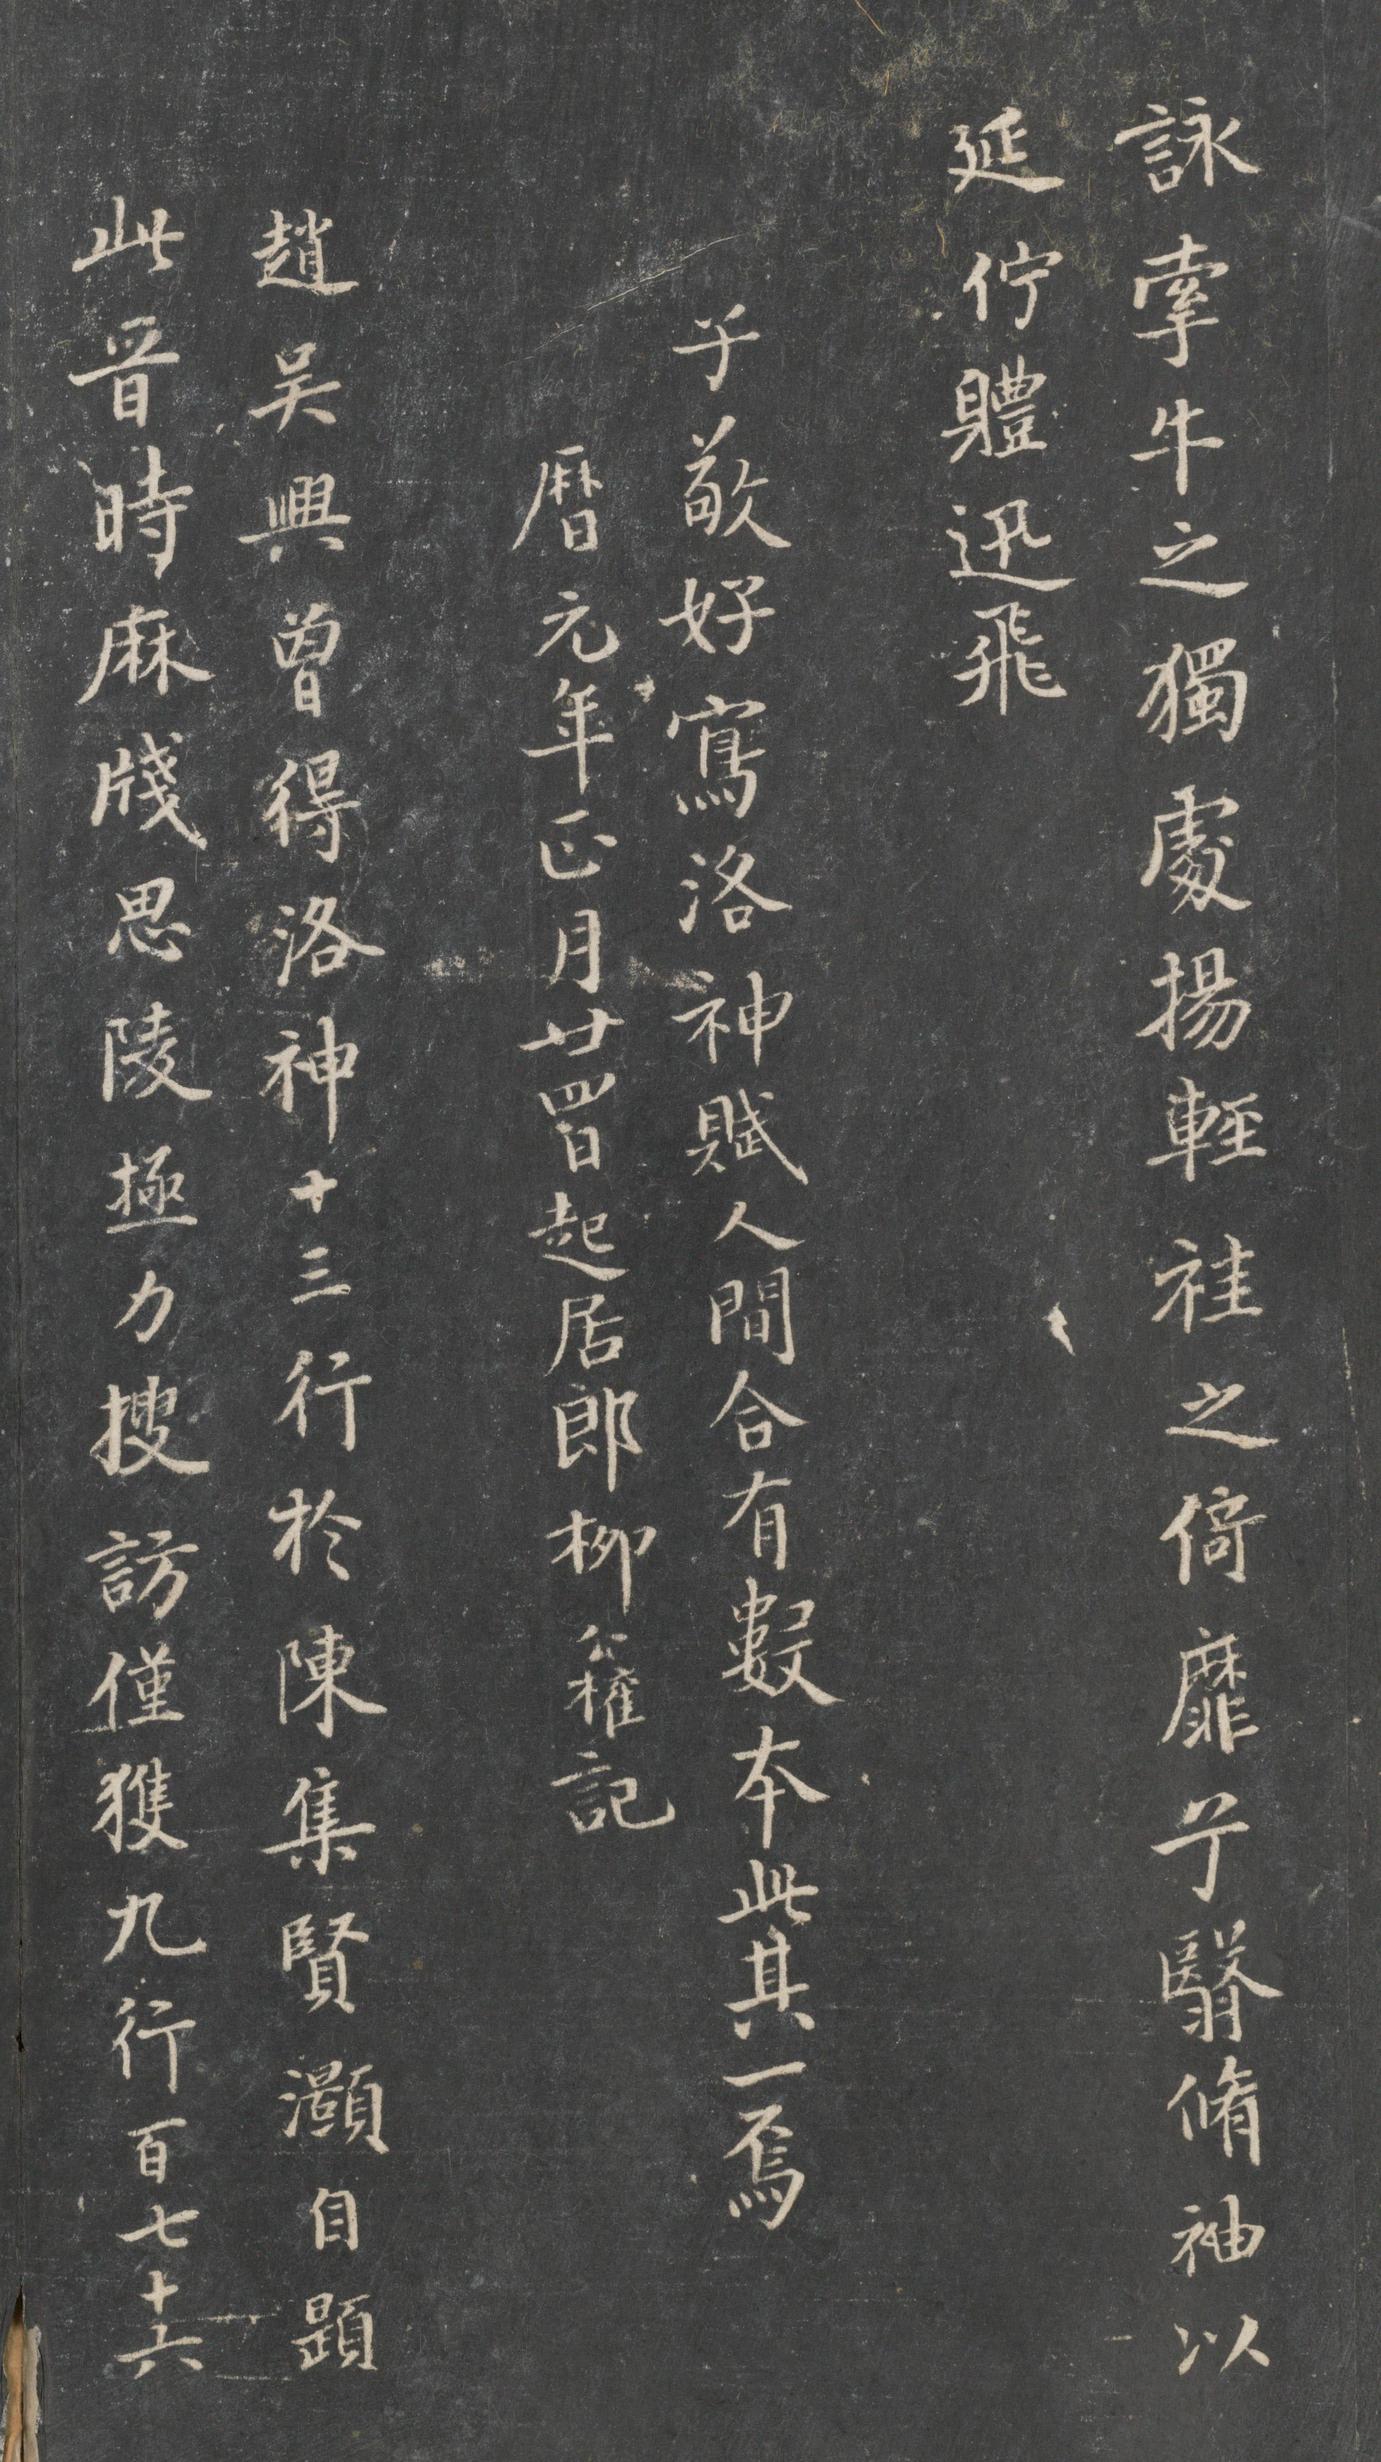 詠牽牛之獨處揚輕袿之倚靡兮翳脩袖以
延佇體迅飛
子敬好寫洛神賦人間合有數本此其一焉
曆元年正月廿四日起居郎柳公權記
趙吳興曾得洛神十三行於陳集賢灝自題
此晉時麻牋思陵極力搜訪僅獲九行百七十六